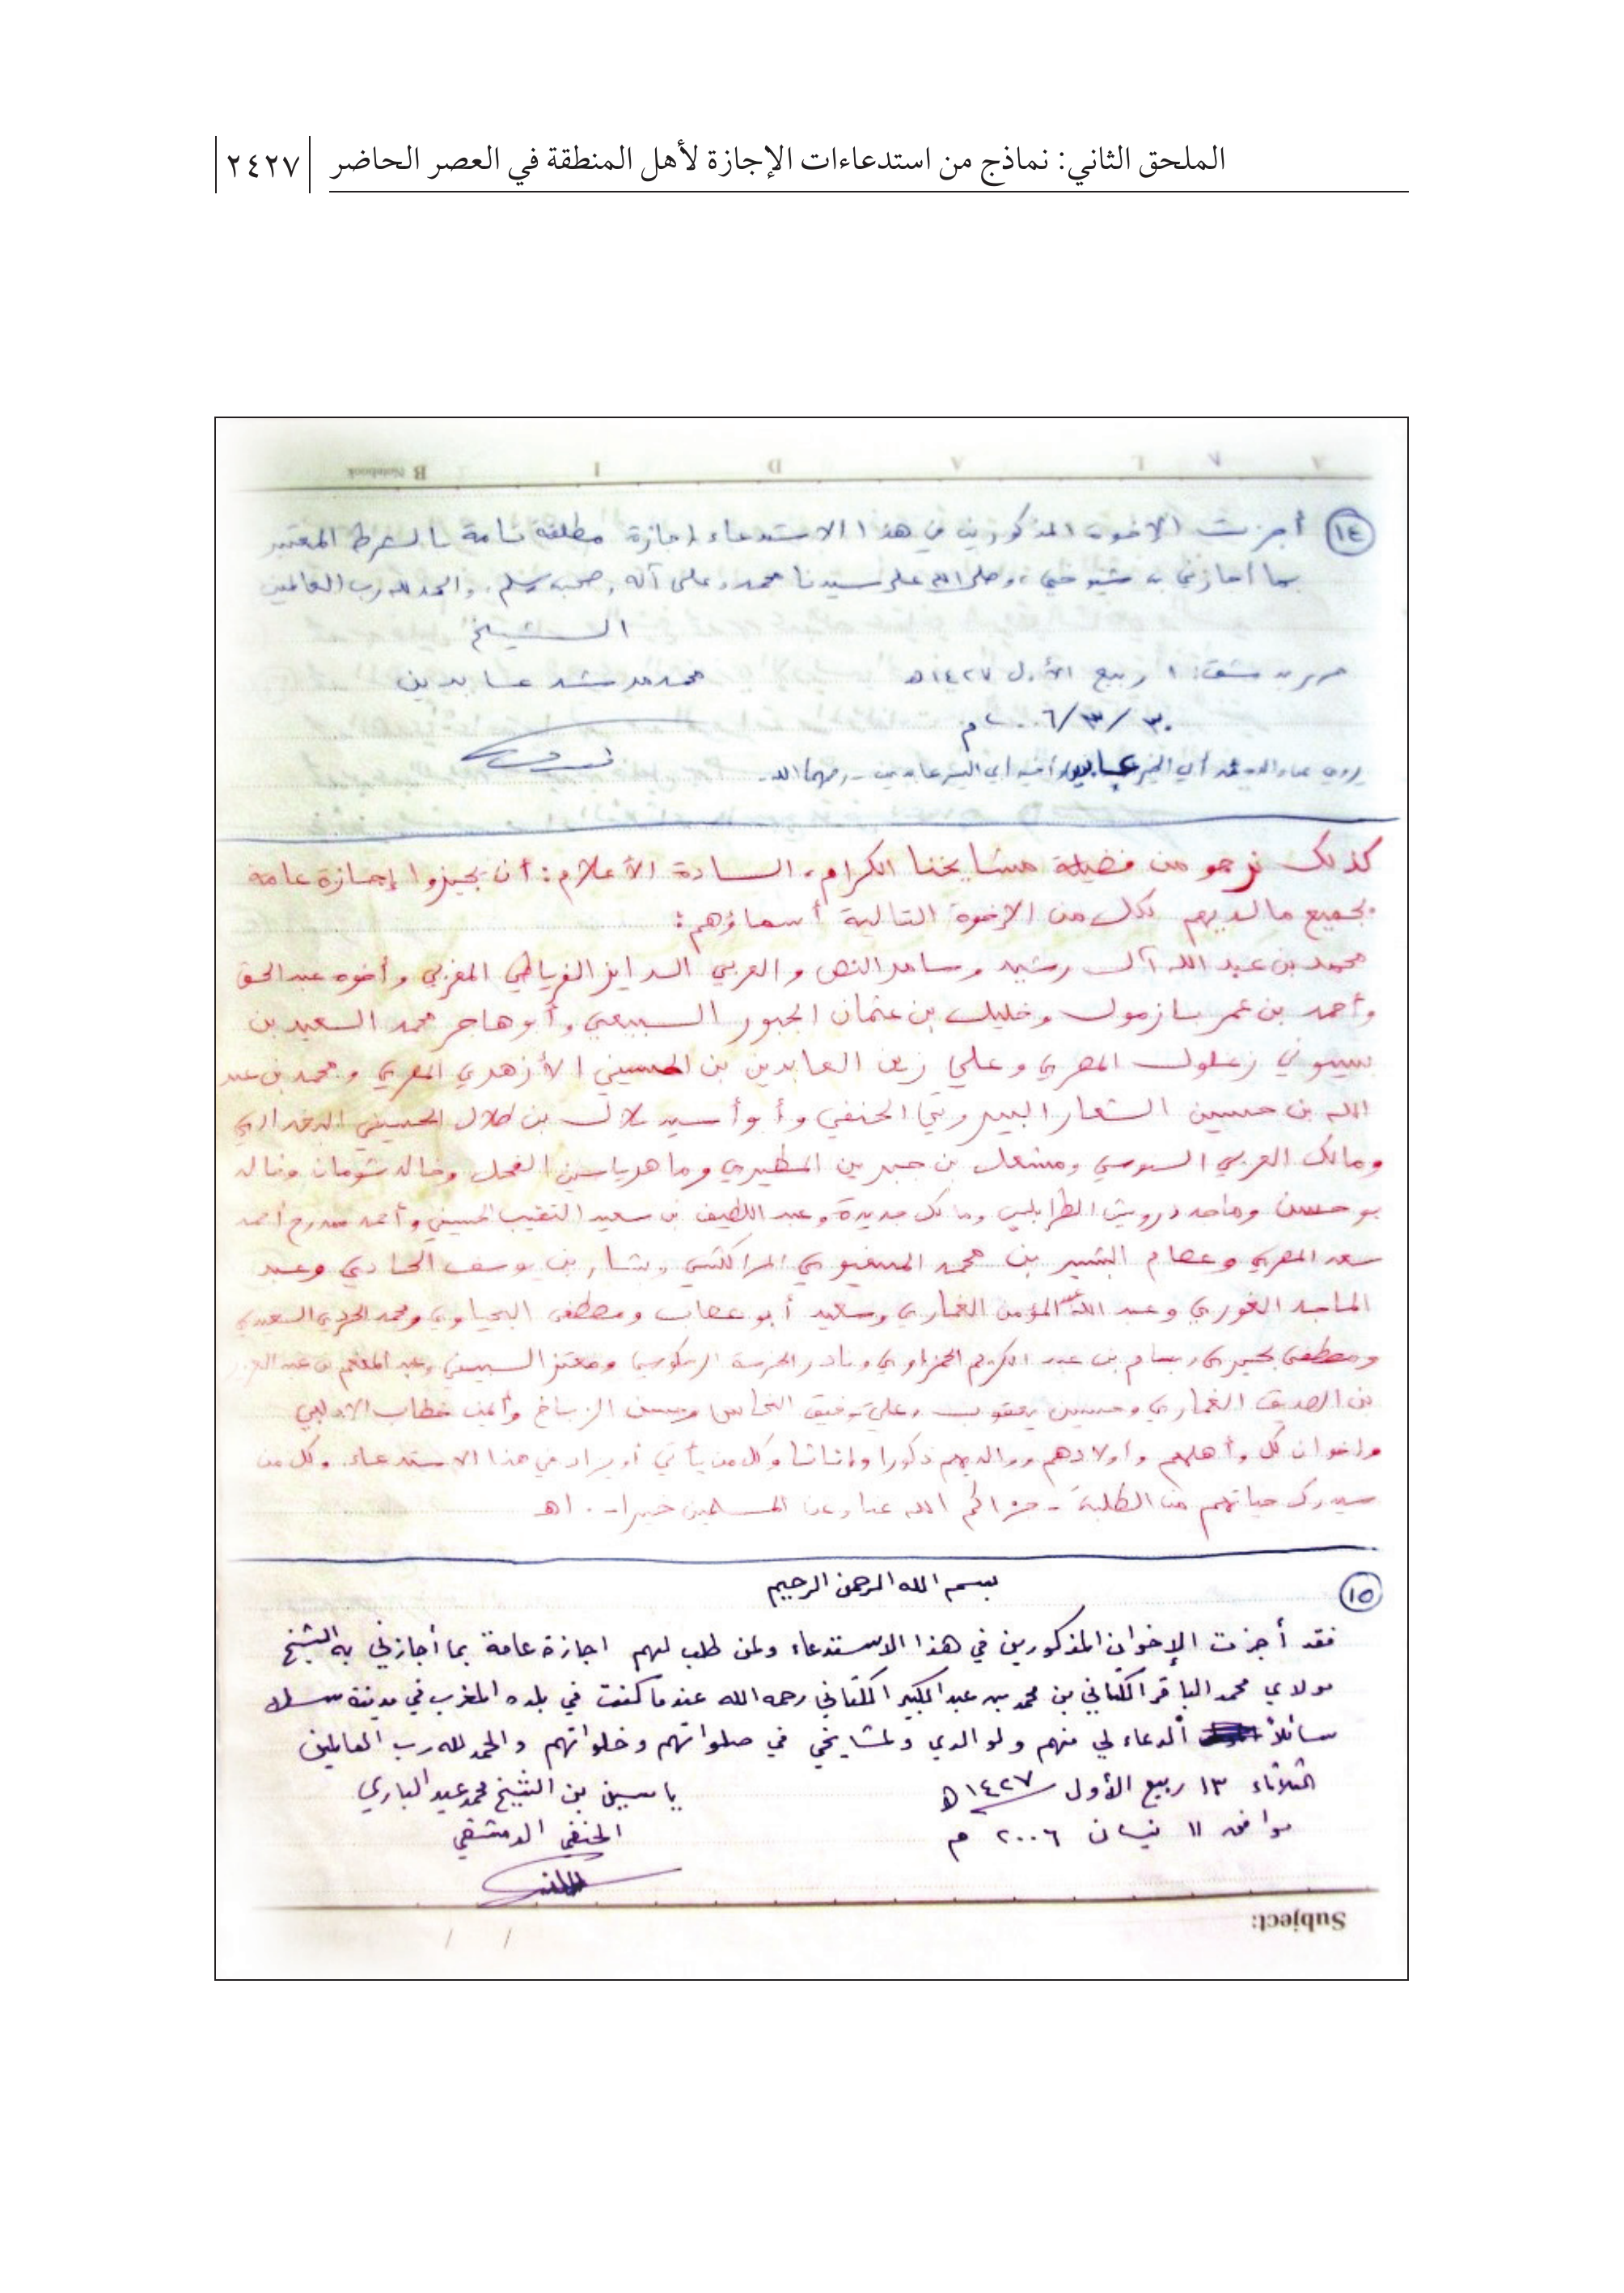 الملحق الثاني: نماذج من استدعاءات الإجازة لأهل المنطقة في العصر الحاضر
٢٤٢٧
B Notebook
١٤ أجزت الإخوة المذكورين في هذا الاستدعاء إجازة مطلقة تامة بالشرط المعتبر
بما أجازني به شيوخي، وصلى الله على سيدنا محمد وعلى آله وصحبه وسلم، والحمد لله رب العالمين
الشيخ
١ ربيع الأول ١٤٢٧هـ
محمد مرشد عابدين
٣٠/٣/٢٠٠٦م
أبي اليسر عابدين - رحمهما الله -
كذلك نرجو من فضيلة مشايخنا الكرام، السادة الأعلام: أن يجيزوا إجازة عامة
بجميع ما لديهم لكل من الإخوة التالية أسماؤهم:
محمد بن عبد الله آل رشيد وسامر النص والعربي الدايز الفرياطي المغربي وأخوه عبد الحق
وأحمد بن عمر بازمول وخليل بن عثمان الجبور السبيعي وأبو هاجر محمد السعيد بن
بسيوني زغلول المصري وعلي زين العابدين بن الحسيني الأزهري المصري ومحمد بن عبد
الله بن حسين الشعار البيروتي الحنفي وأبو أسيد بلال بن طلال الحسيني البغدادي
ومالك العربي السوسي ومشعل بن جبرين المطيري وماهر ياسين الفحل وخالد شومان وخالد
بو حسن وماجد درويش الطرابلسي ومالك جديدة وعبد اللطيف بن سعيد النقيب الحسيني وأحمد أحمد
سعد المصري وعصام البشير بن محمد المسفيوي المراكشي وبشار بن يوسف الحادي وعبد
الماجد الغوري وعبد الله عبد المؤمن الغماري وسعيد أبو عصاب ومصطفى البحياوي ومحمد السعيدي
ومصطفى بحيري وبسام بن عبد الكريم الحمزاوي ومعتز السبيني وعبد المنعم بن عبد العزيز
بن الصديق الغماري وحسين يعقوب وعلي توفيق النحاس وأيمن خطاب الادلبي
وإخوان كل وأهلهم وأولادهم ووالديهم ذكورا وإناثا وكل من يأتي أو يزاد في هذا الاستدعاء، وكل من
سيدرك حياتهم من الطلبة - جزاكم الله عنا وعن المسلمين خيرا -. اهـ
١٥
بسم الله الرحمن الرحيم
فقد أجزت الإخوان المذكورين في هذا الاستدعاء ولمن طلب لهم اجازة عامة بما أجازني به الشيخ
مولاي محمد الباقر الكتاني بن محمد بن عبد الكبير الكتاني رحمه الله عندما كنت في بلده المغرب في مدينة سلا
سائلاً الدعاء لي منهم ولوالدي ولمشايخي في صلواتهم وخلواتهم والحمد لله رب العالمين
الثلاثاء ١٣ ربيع الأول ١٤٢٧هـ
ياسين بن الشيخ محمد عبد الباري
موافق ١١ نيسان ٢٠٠٦ م
الحنفي الدمشقي
Subject: